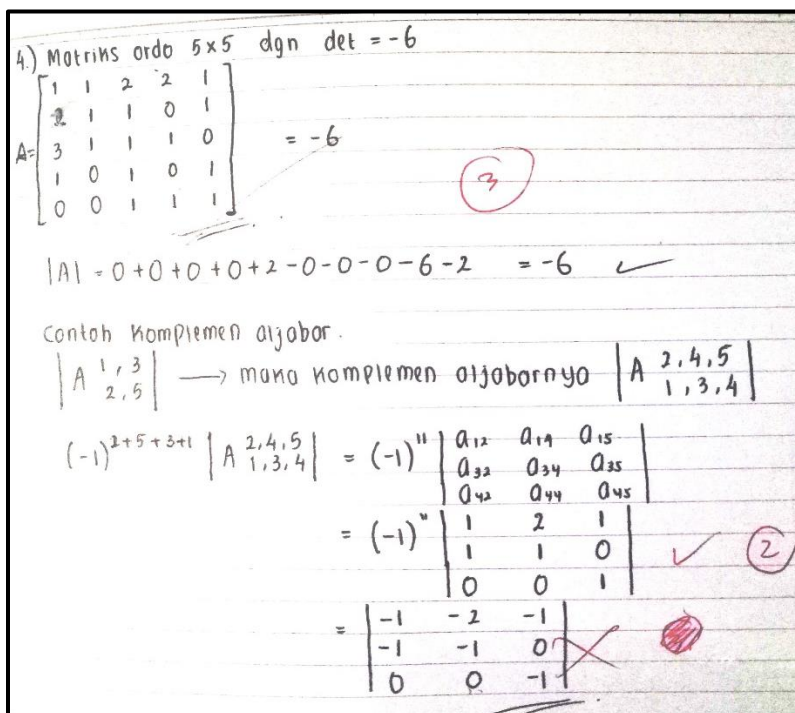 4.) Matriks ordo 5x5 dgn det = -6
A= [ 1 1 2 2 1
1 1 0 1
3 1 1 1 0
1 0 1 0 1
0 0 1 1 1 ] = -6
3
|A| = 0+0+0+0+2-0-0-0-6-2 = -6 ✓
Contoh Komplemen aljabar.
|A 1,3 2,5| → maka Komplemen aljabarnya |A 2,4,5 1,3,4|
(-1)^2+5+3+1 |A 2,4,5 1,3,4| = (-1)^11 | a12 a14 a15
a32 a34 a35
a42 a44 a45 |
= (-1)^11 | 1 2 1
1 1 0
0 0 1 | ✓ 2
= | -1 -2 -1
-1 -1 0
0 0 -1 |